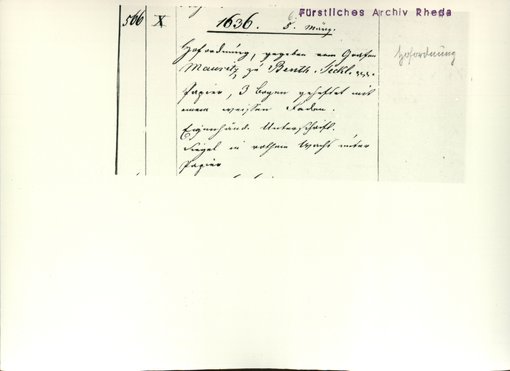 Fürstliches Archiv Rheda
566 X 1636. 5. März.
Hofordnung, gegeben vom Grafen
Mauritz zu Benth. Teckl. pp.
Papier, 3 bogen geheftet mit
einem weissen Faden.
Eigenhänd. Unterschrift.
Siegel in rothem Wachs unter
Papier
Hofordnung